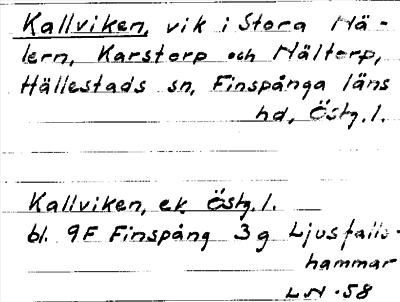 Kallviken, vik i Stora Nä-
lern, Karstorp och Nältorp,
Hällestads sn, Finspånga läns
hd, Östg. l.
Kallviken, ek Östg. l.
bl. 9F Finspång 3g Ljusfalls-
hammar
LN -58